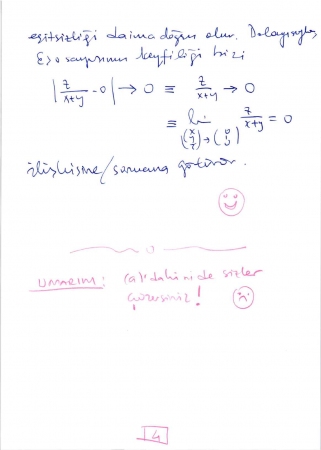 eşitsizliği daima doğru olur. Dolayısıyla,
ε>0 sayısının keyfiliği bizi
|z/(x+y) - 0| → 0 ≡ z/(x+y) → 0
≡ lim (x y z)→(0 1 0) z/(x+y) = 0
ilişkisine/sonucuna götürür.
UMARIM: (a)'dakini de sizler
çözersiniz!
4